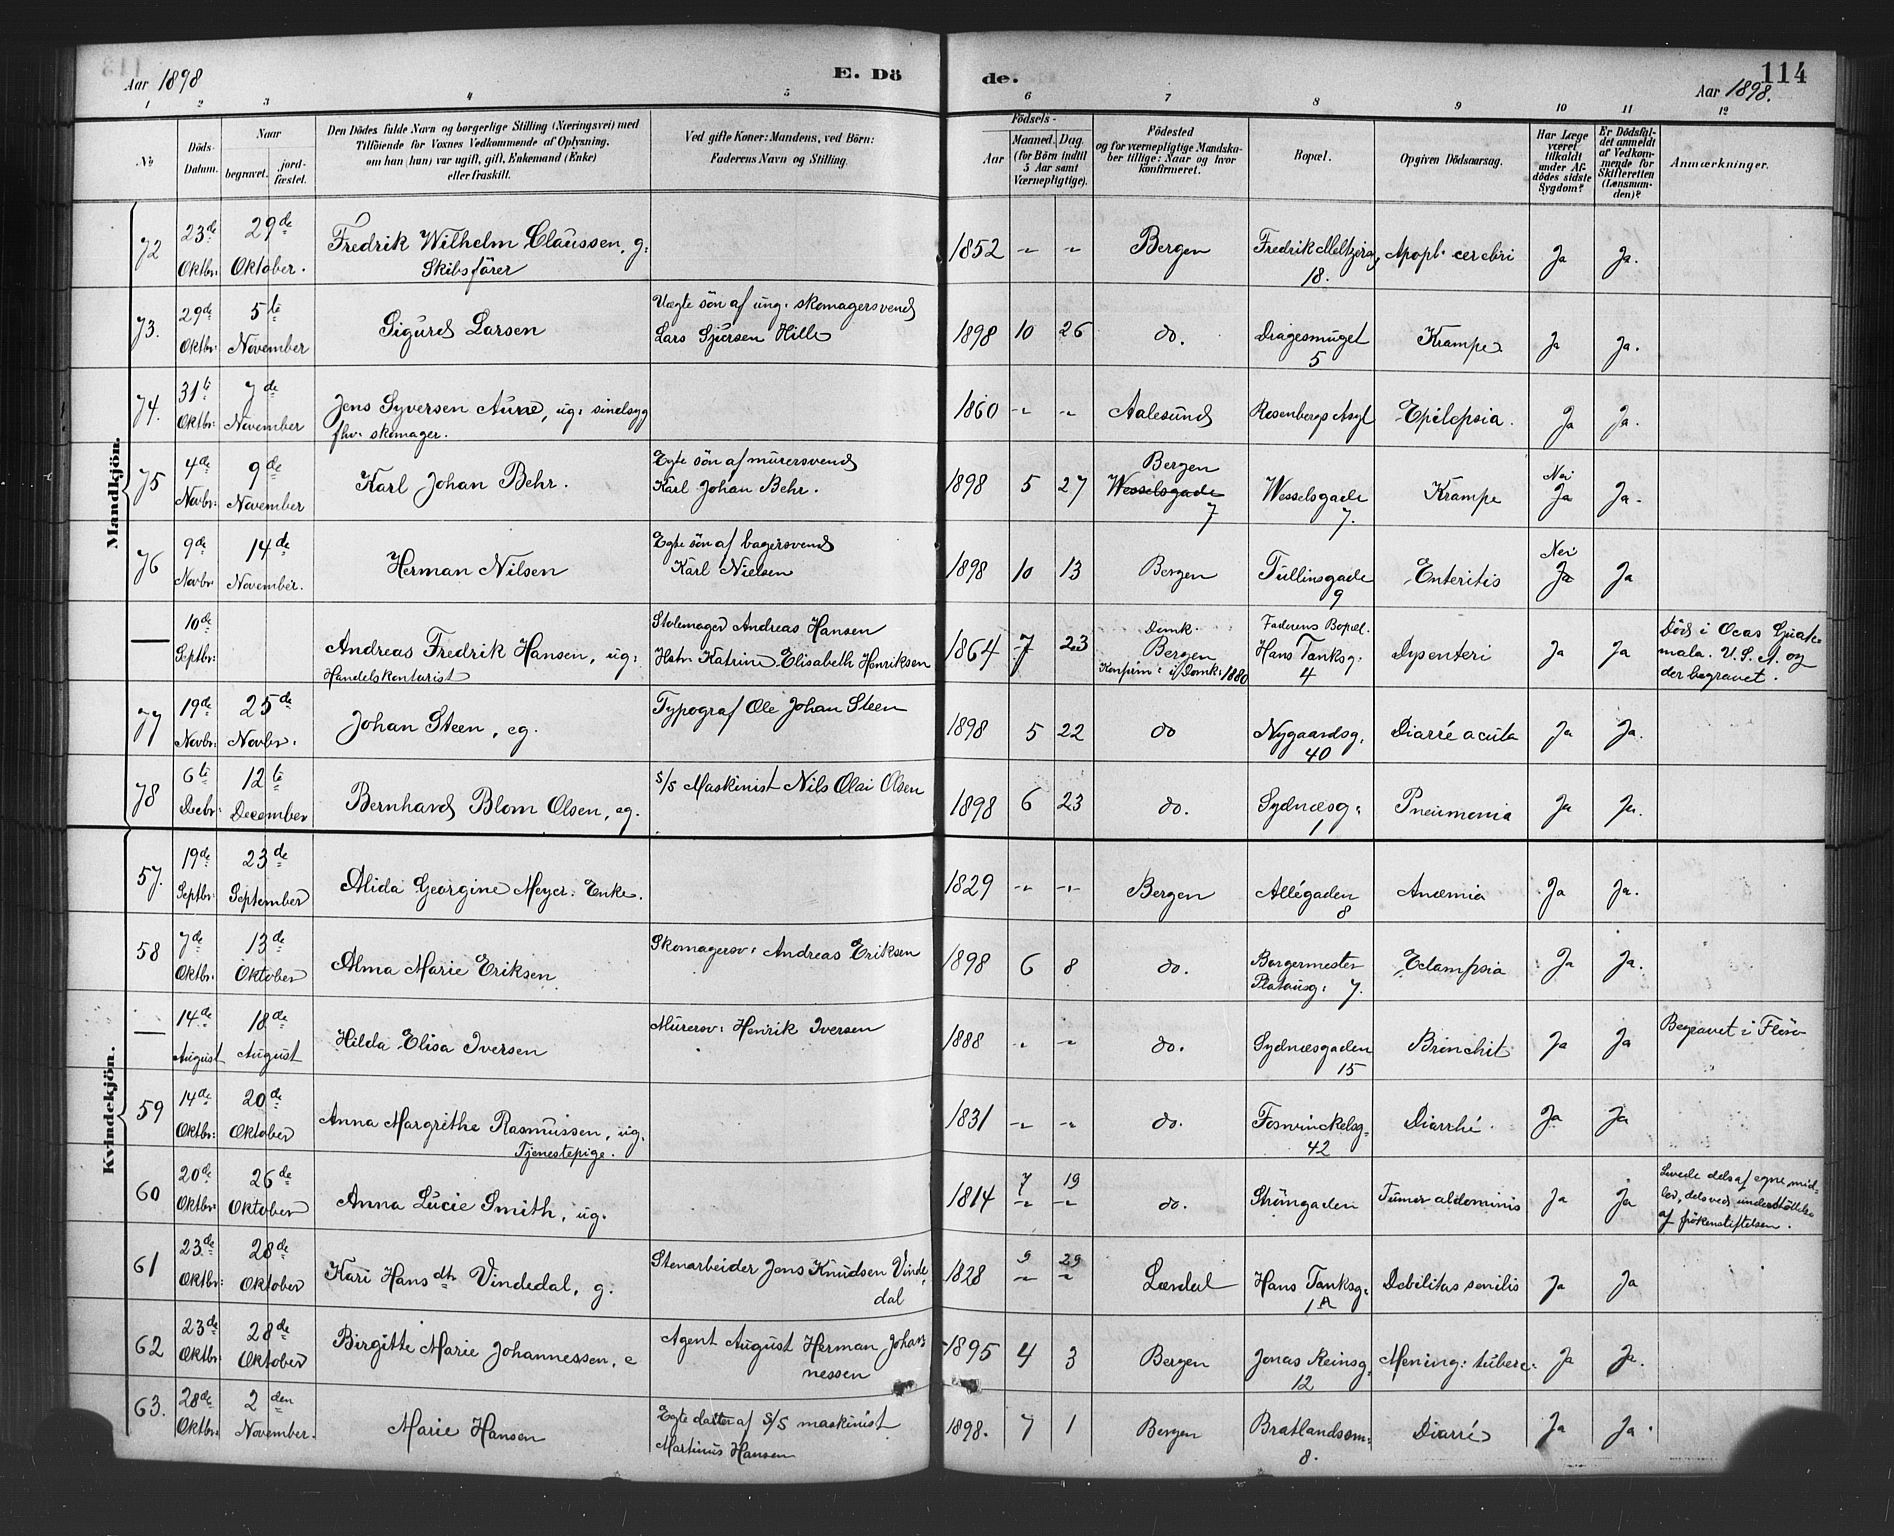 Aar 1898 E. Dö de. Aar 1898. 114
1 2 3 4 5 6 7 8 9 10 11 12
No
Döds-Datum.
Naar begravet. jordfæstet.
Den Dödes fulde Navn og borgerlige Stilling (Næringsvei) med
Tilföiende for Voxnes Vedkommende af Oplysning,
om han (hun) var ugift, gift, Enkemand (Enke)
eller fraskilt.
Ved gifte Koner: Mandens, ved Börn:
Faderens Navn og Stilling.
Födsels-
Aar Maaned. Dag.
(for Börn indtil 5 Aar samt Værnepligtige).
Födested
og for værnepligtige Mandskaber tillige: Naar og hvor konfirmeret.
Bopæl.
Opgiven Dödsaarsag.
Har Læge været tilkaldt under Afdödes sidste Sygdom?
Er Dödsfaldet anmeldt af Vedkommende for Skifteretten (Lensmanden)?
Anmærkninger.
Mandkjön.
72 23de Oktbr: 29de Oktober. Fredrik Wilhelm Claussen, g: Skibsförer 1852 -"- -"- Bergen Fredrik Meltzersg, 18. Apopl. cerebri Ja Ja.
73. 29de Oktbr: 5te November Sigurd Larsen Uægte sön af ung: skomagersvend Lars Sjursen Hille 1898 10 26 do. Dragesmuget 5 Krampe Ja Ja.
74. 31te Oktbr: 7de November Jens Syversen Aure, ug: sindssyg fhv: skomager. 1860 -"- -"- Aalesund Rosenbergs Asyl Epilepsia. Ja Ja.
75 4de Novbr: 9de November Karl Johan Behr. Egte sön af murersvend Karl Johan Behr. 1898 5 27 Bergen Wesselsgade 7 Wesselsgade 7. Krampe Nei Ja Ja.
76 9de Novbr 14de November. Herman Nilsen Egte sön af bagersvend Karl Nielsen 1898 10 13 Bergen Tullinsgade 9 Enteritis Nei Ja Ja
— 10de Septbr: Andreas Fredrik Hansen, ug: Handelskontorist Stolemager Andreas Hansen Hstr. Katrine Elisabeth Henriksen 1864 7 23 Domk. Bergen Konfirm: i Domk: 1880 Faderens Bopæl. Hans Tanksg: 4 Dysenteri Ja Ja Död i Ocas Guatemala. U.S.A. og der begravet.
77 19de Novbr: 25de Novbr. Johan Steen, eg. Typograf Ole Johan Steen 1898 5 22 do Nygaardsg, 40 Diarré acuta Ja Ja.
78 6te Decbr: 12te December Bernhard Blom Olsen, eg. S/S Maskinist Nils Olai Olsen 1898 6 23 do. Sydnæsg: 1 Pneumonia Ja Ja.
Kvindekjön.
57. 19de Septbr: 23de September Alida Georgine Meyer. Enke. 1829 -"- -"- Bergen Allégaden 8 Anæmia Ja Ja.
58 7de Oktbr: 13de Oktober Alma Marie Eriksen Skomagersv: Andreas Eriksen 1898 6 8 do. Borgermester Platousg: 7. Eclampsia Ja Ja.
— 14de August 18de August Hilda Elisa Iversen Murersv: Henrik Iversen 1888 -"- -"- do. Sydnæsgaden 15 Bronchit Ja Ja Begravet i Florö
59 14de Oktbr: 20de Oktober Anna Margrithe Rasmussen, ug. Tjenestepige. 1831 -"- -"- do. Fosswinckelsg: 42 Diarrhé. Ja Ja
60 20de Oktbr: 26de Oktober Anna Lucie Smith, ug. 1814 7 -"- 19 -"- do. Strömgaden Tumor abdominis Ja Ja Levede dels af egne midler, dels ved understöttelse af frökenstiftelsen.
61 23de Oktbr: 28de Oktober Kari Hansdtr. Vindedal, g. Stenarbeider Jens Knudsen Vindedal 1828 9 -"- 29 -"- Lærdal Hans Tanksg: 1A Debilitas senilis Ja Ja
62 23de Oktbr: 28de Oktober Birgitte Marie Johannessen, e Agent August Herman Johannessen 1895 4 3 Bergen Jonas Reinsg. 12 Mening: tuberc: Ja Ja.
63. 28de Oktbr: 2den November. Marie Hansen Egte datter af S/S maskinist Martinus Hansen 1898. 7 1 Bergen Bratlandsm: 8. Diarré Ja Ja.